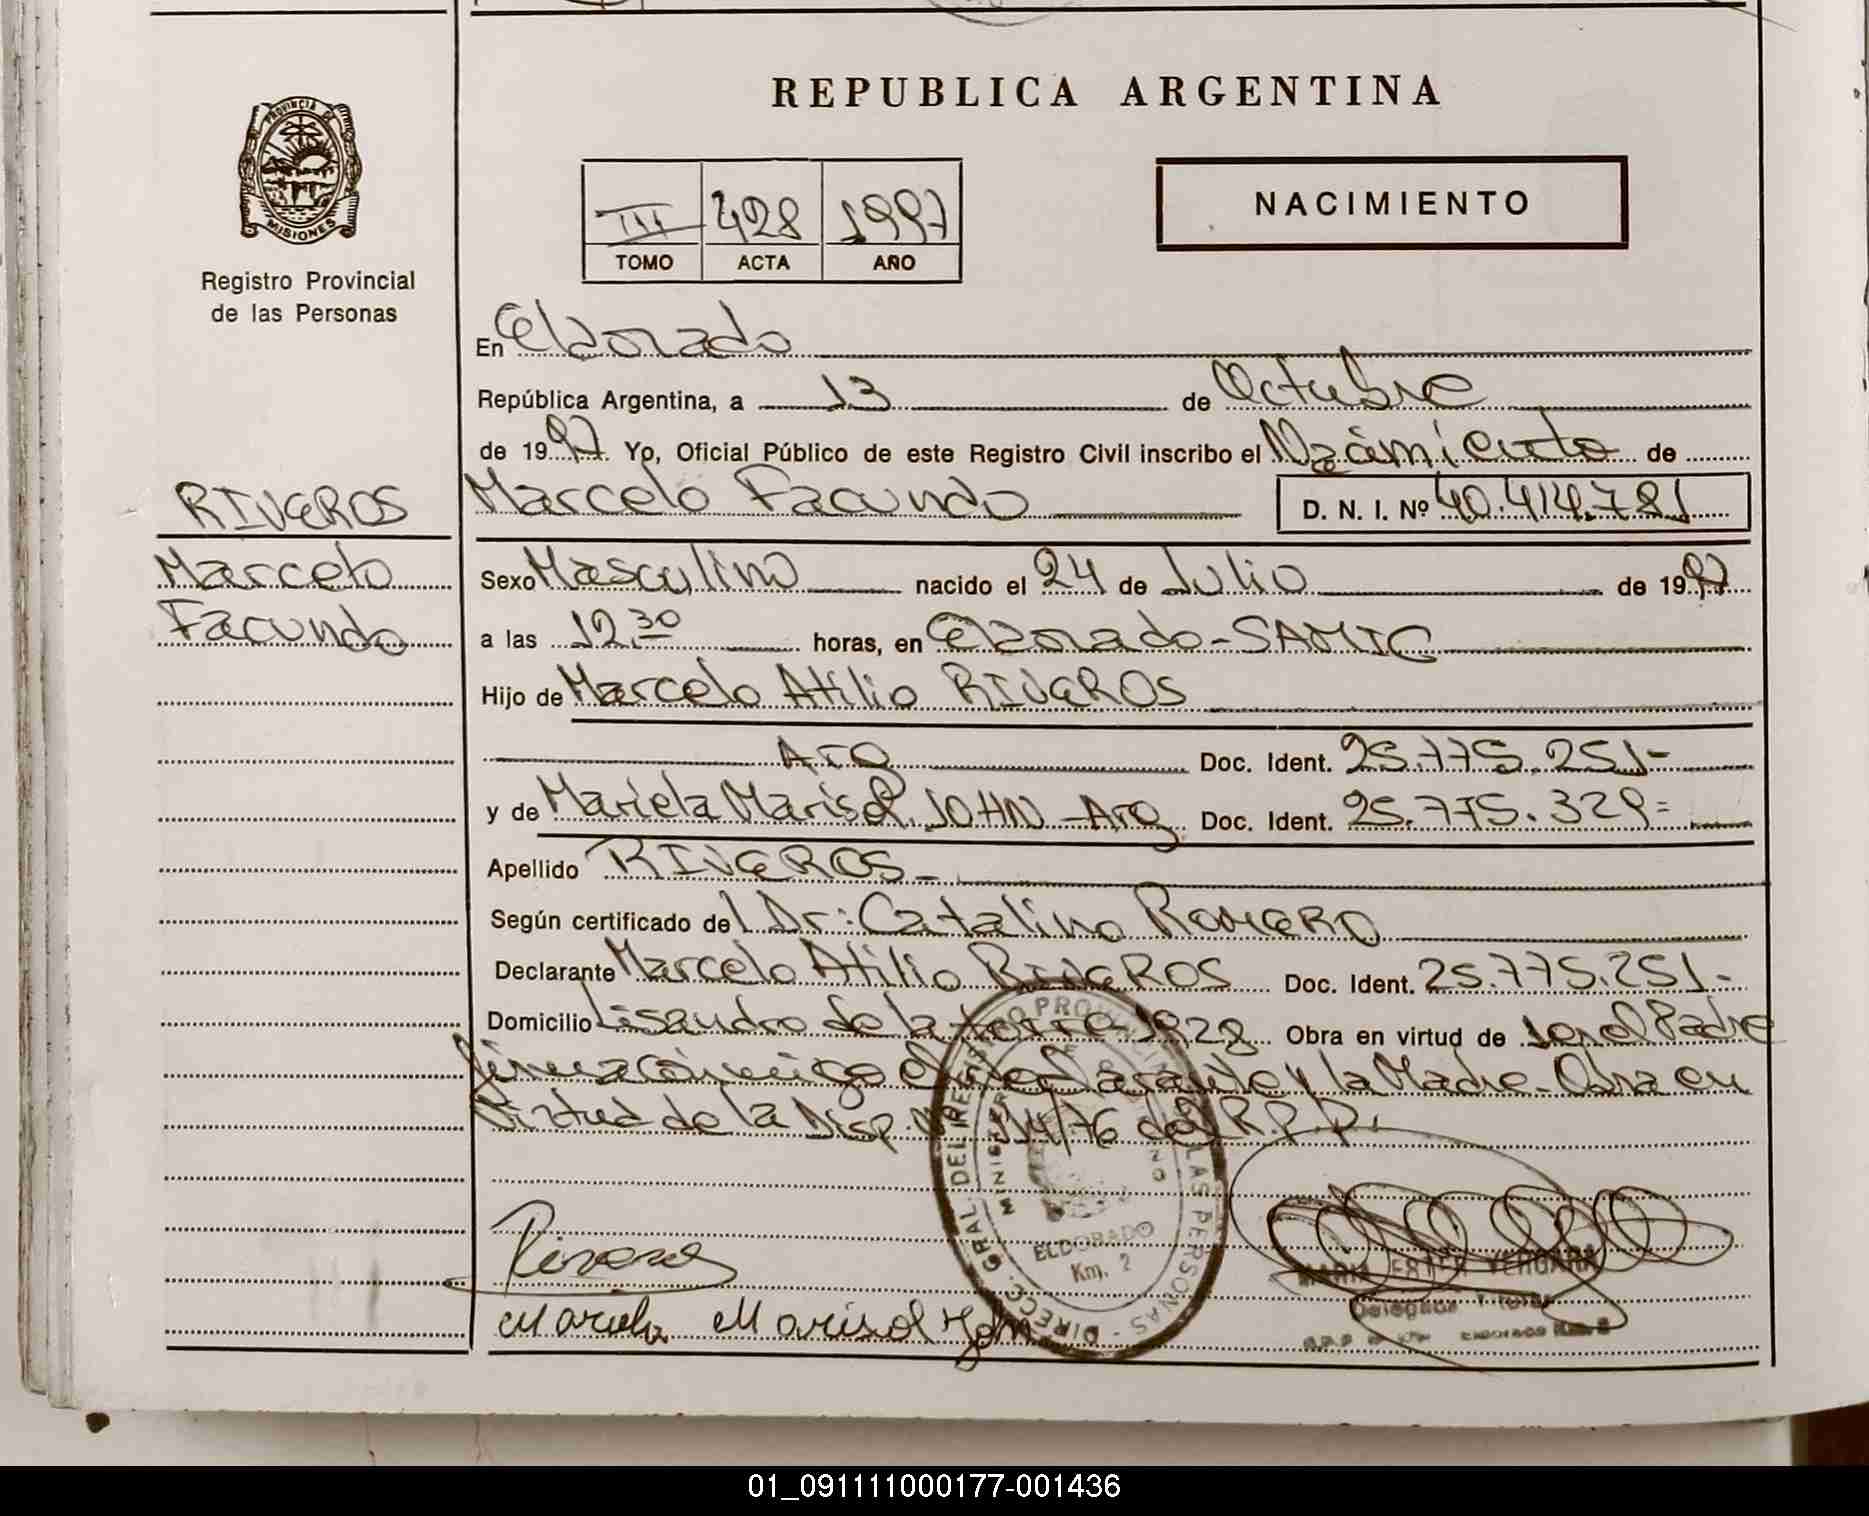 REPUBLICA ARGENTINA
PROVINCIA DE
MISIONES
Registro Provincial
de las Personas
III 428 1997
TOMO ACTA AÑO
NACIMIENTO
En Eldorado
República Argentina, a 13 de Octubre
de 1997. Yo, Oficial Público de este Registro Civil inscribo el Nacimiento de
RIVEROS
Marcelo Facundo D. N. I. Nº 40.414.781
Marcelo
Facundo
Sexo Masculino nacido el 24 de Julio de 1997
a las 12.30 horas, en Eldorado-SAMIC
Hijo de Marcelo Atilio RIVEROS
Arg Doc. Ident. 25.775.251-
y de Mariela Marisol JOHN - Arg Doc. Ident. 25.775.329=
Apellido RIVEROS-
Según certificado del Dr: Catalino ROMERO
Declarante Marcelo Atilio RIVEROS Doc. Ident. 25.775.251-
Domicilio Lisandro de la torre 1928 Obra en virtud de ser el Padre
firma conmigo el declarante y la Madre-Obra en
Virtud de la Disp. Nº 114/76 del R.P.P.
DIRECC. GRAL. DEL REGISTRO PROVINCIAL DE LAS PERSONAS
ELDORADO
Km. 2
Riveros
Mariela Marisol John
MARIA ESTER VERGARA
Delegada Titular
01_091111000177-001436